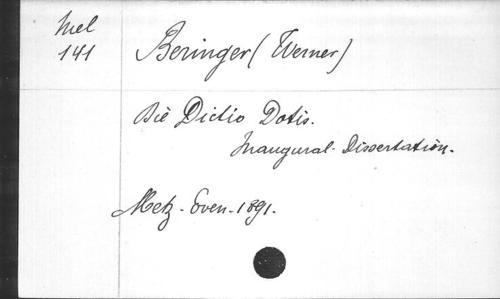 Mel
141
Beringer (Werner)
Die Dictio Dotis.
Inaugural-Dissertation.
Metz. Even. 1891.